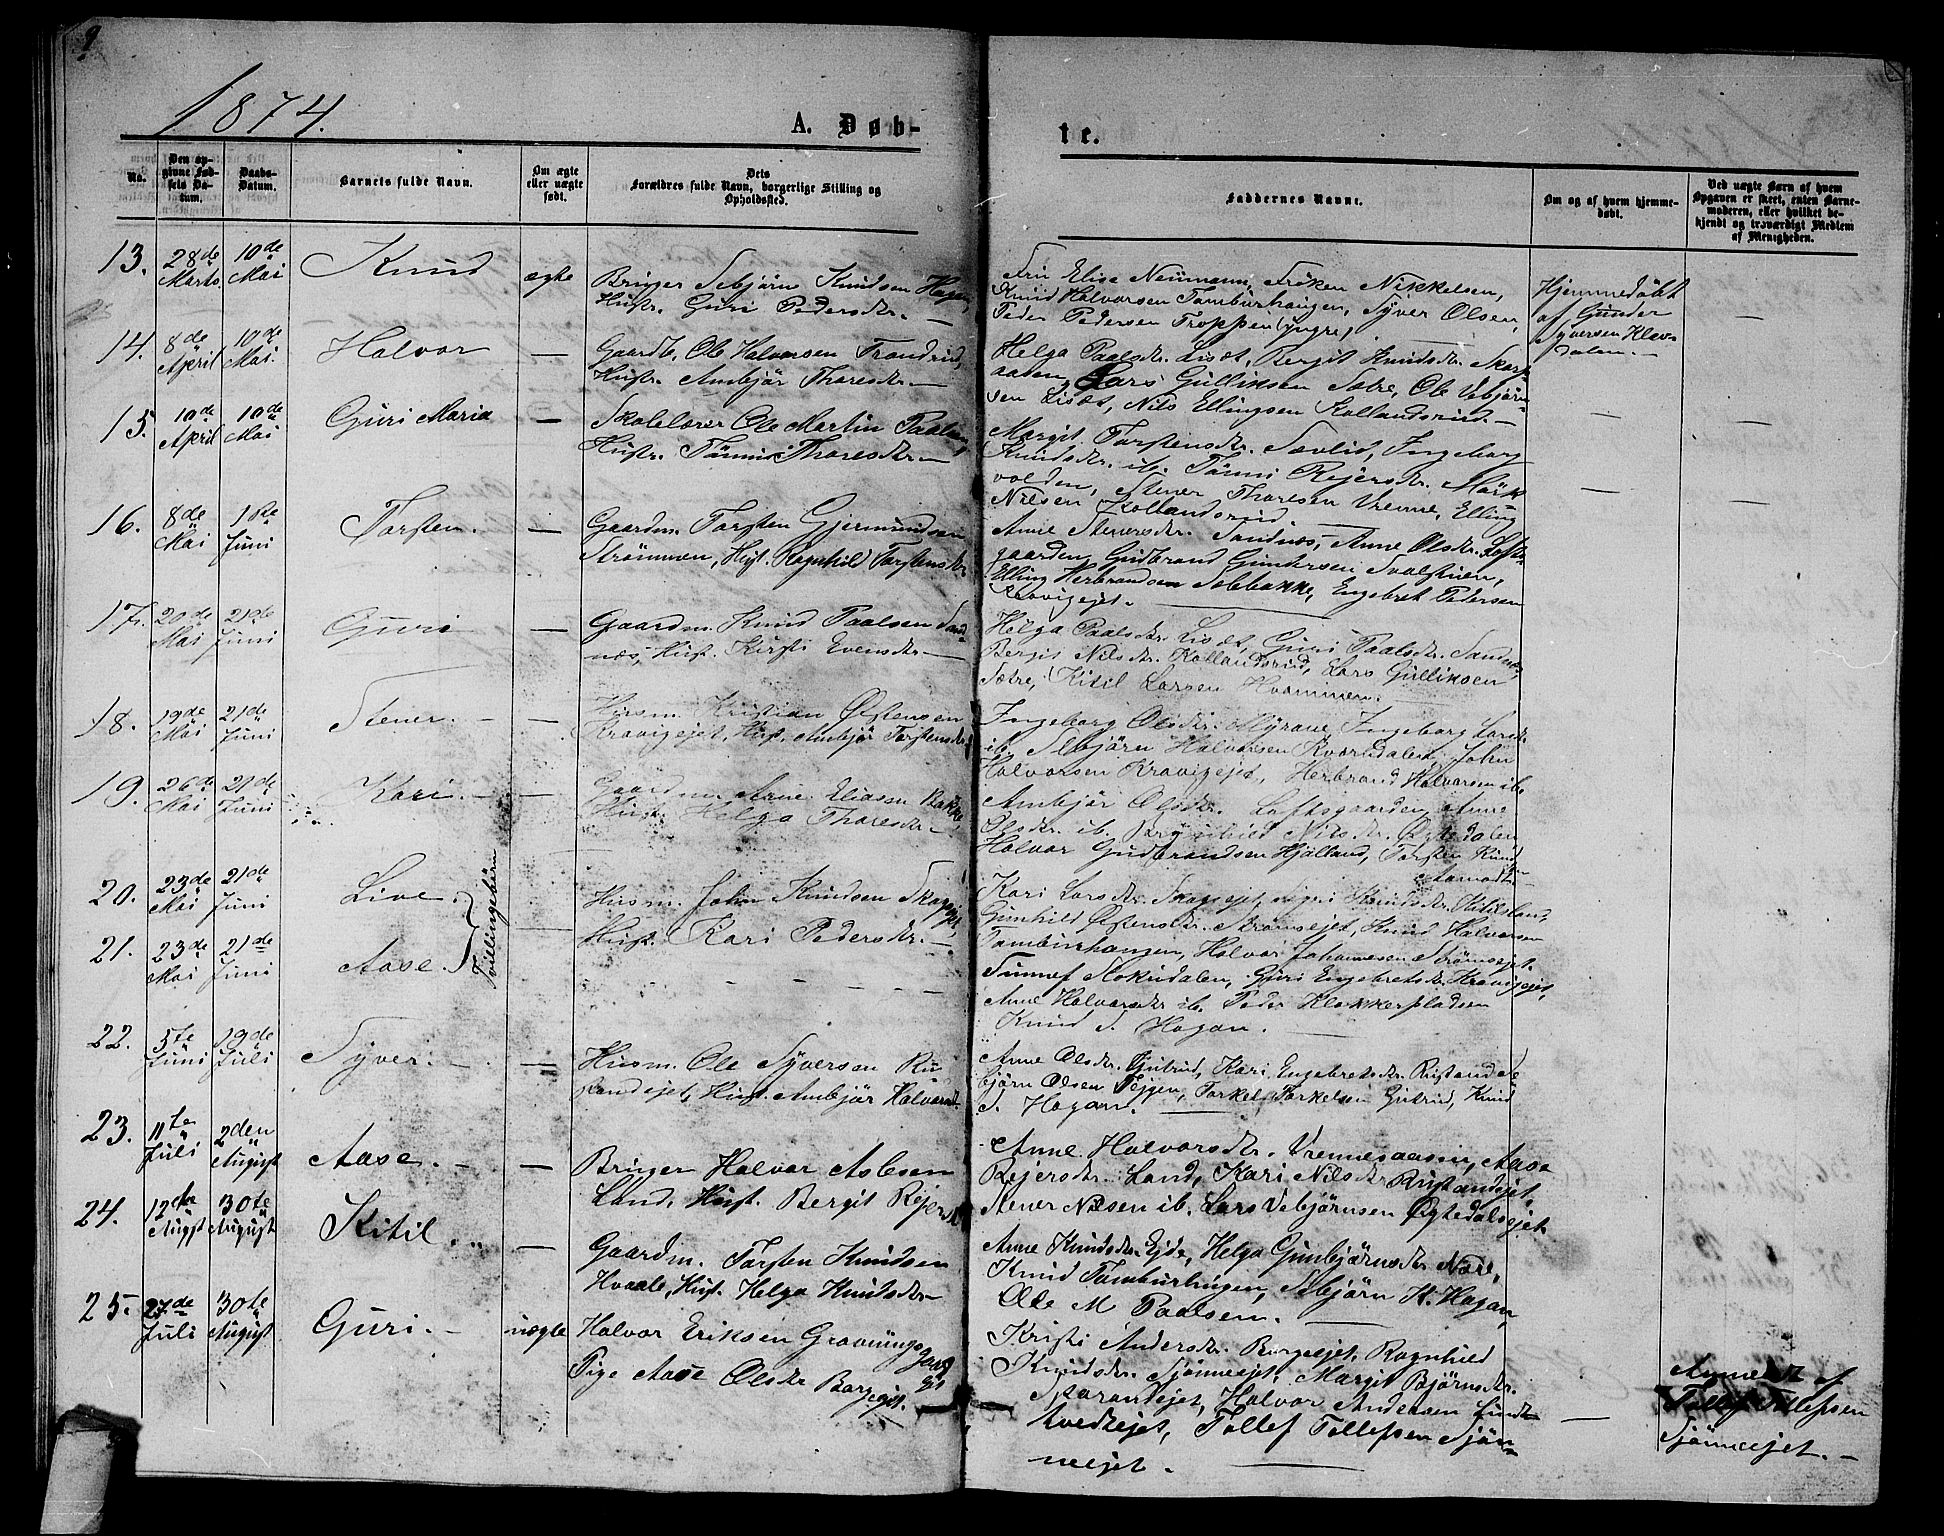 9
1874.
A. Døb-
te.
No.
Den op-
givne Fød-
sels Da-
tum.
Daabs-
Datum.
Barnets fulde Navn.
Om ægte
eller uægte
født.
Dets
Forældres fulde Navn, borgerlige Stilling og
Opholdssted.
Faddernes Navne.
Om og af hvem hjemme-
døbt.
Ved uægte Børn af hvem
Opgaven er skeet, enten Barne-
moderen, eller hvilket be-
kjendt og troværdigt Medlem
af Menigheden.
13. 28de Marts 10de Mai Knud ægte
Bruger Sebjørn Knudsen Hagan,
Hustr. Guri Pedersdtr. —
Fru Elise Neumann, Frøken Nikkelsen,
Knud Halvorsen Tamburhaugen, Syver Olsen,
Peder Pedersen Troppen (yngre)
Hjemmedøbt
af Gunder
Syversen Klev-
dalen. —
14. 8de April 10de Mai. Halvor —
Gaardb. Ole Halvorsen Trondrud,
Hustr. Ambjør Thoresdtr. —
Helga Paalsdtr. Liset, Bergit Knudsdtr. Skar-
aaden, Lars Gulliksen Sætre, Ole Vebjørn-
sen Liset, Nils Ellingsen Kollandsrud. —
15. 10de April 10de Mai Guri Maria —
Skolelærer Ole Martin Paalsen,
Hustr. Tønne Thoresdtr. —
Margit Torstensdtr. Sævlid, Ingeborg
Knudsdtr. ib. Tønni Rejersdtr. Mørk
volden, Stener Thoresen Vrenne, Elling
Nilsen Kollandsrud. —
16. 8de Mai 1ste Juni Torsten. —
Gaardm. Torsten Gjermundsen
Strømmen, Hust. Ragnhild Torstensdtr.
Anne Stenersdtr. Sandnæs, Anne Olsdtr. Lofts-
gaarden, Gudbrand Gundersen Svalstuen,
Elling Herbrandsen Sebbakke, Engebret Pedersen
Kravigejet. —
17. 20de Mai 21de Juni Guri —
Gaardm. Knud Paalsen Sand-
næs, Hust. Kirsti Evensdtr. —
Helga Paalsdtr. Liset, Guri Paalsdtr. Sandnæs,
Bergit Nilsdtr. Kollandsrud, Lars Gulliksen
Sætre, Kitil Larsen Hvammen.
18. 19de Mai 21de Juni Stener. — —
Husm. Kristian Østensen
Kravigejet, Hust. Ambjør Torstensdtr.
Ingeborg Olsdtr. Myrane, Ingeborg Larsdtr.
ib. Sebjørn Halvorsen Kvarndalen, John
Halvorsen Kravigejet, Herbrand Halvorsen ib.
19. 26de Mai 21de Juni Kari. — —
Gaardm. Arne Eliasen Bakke,
Hust. Helga Thoresdtr. —
Ambjør Olsdtr. Loftsgaarden, Anne
Olsdtr. ib. Nilsdtr. Øgtedalen,
Halvor Gudbrandsen Hjalland, Torsten Knud
20. 23de Mai 21de Juni Live.
Tvillingebørn
Husm. John Knudsen Skogejet,
Hust. Kari Pedersdtr. —
Kari Larsdtr. Skogsejet, Sigri Knudsdtr. Kitilsland,
Gunhild Østensdtr. Strømsejet, Knud Halvorsen
Tamburhaugen, Halvor Johannesen Strømsejet.
21. 23de Mai 21de Juni Aase.
— — — — — —
Tunnef Stokudalen, Guri Engebretsdtr. Kravigejet,
Anne Halvorsdtr. ib. Peder Klokkerpladsen
Knud S. Hagan. —
22. 5te Juni 19de Juli Syver. — —
Husm. Ole Syversen Ru
standejet, Hust. Ambjør Halvorsdtr.
Anne Olsdtr. Gjutrud, Kari Engebretsdtr. Rustand Se-
bjørn Olsen Tejgen, Torkel Torkelsen Gjutrud, Knud
S. Hagan. —
23. 11te Juli 2den August Aase. — —
Bruger Halvor Aslesen
Land, Hust. Bergit Rejersdtr.
Anne Halvorsdtr. Vrennesaasen, Aase
Rejersdtr. Land, Kari Nilsdtr. Rustandejet,
Stener Nilsen ib. Lars Vebjørnsen Øgtedalsejet.
24. 12te Augst 30te August Kitil. —
Gaardm. Torsten Knudsen
Hvaale, Hust. Helga Knudsdtr. —
Anne Knudsdtr. Ejde, Helga Gunbjørnsdtr. Nøre,
Knud Tamburhaugen, Sebjørn K. Hagan,
Ole M. Paalsen. —
25. 27de Juli 30te August Guri. — uægte
Halvor Eriksen Gravningsgaard
Pige Aase Olsdtr Borgegjet.
Kristi Andersdtr. Borgeejet, Ragnhild
Knudsdtr. Sjønneejet, Margit Bjørnsdtr.
Skarandejet, Halvor Andersen Lundt-
hvedtejet, Tollef Tollefsen Sjøn-
neejet. —
Tollef Tollefsen
Sjønneejet. —